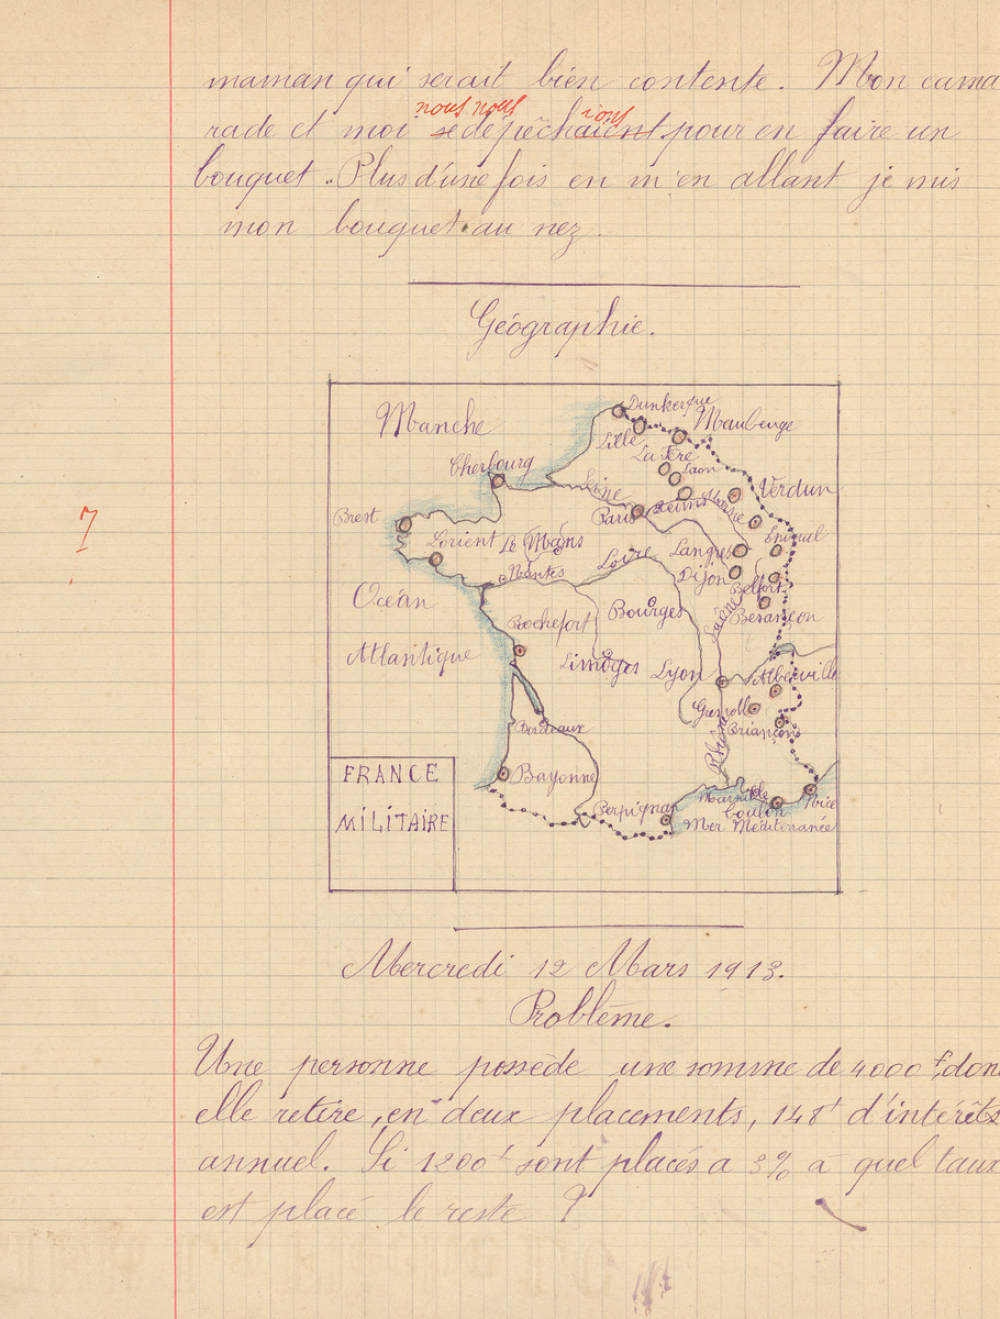 maman qui serait bien contente. Mon cama
nous nous ions
rade et moi se dépêchaient pour en faire un
bouquet. Plus d'une fois en m'en allant je mis
mon bouquet au nez.
Géographie.
Manche
Dunkerque
Maubeuge
Lille
La Fère
Laon
Cherbourg
Seine
Verdun
Brest
Paris
Reims
Lorient
Le Mans
Epinal
Langres
Loire
Nantes
Dijon
Belfort
Océan
Rochefort
Bourges
Saône
Besançon
Atlantique
Limoges
Lyon
Alberville
Grenoble
Briançon
Bordeaux
Rhône
FRANCE
MILITAIRE
Bayonne
Perpignan
Marseille
Nice
Toulon
Mer Méditerranée
7
Mercredi 12 Mars 1913.
Problème.
Une personne possède une somme de 4000f, don
elle retire, en deux placements, 148f d'intérêts
annuel. Si 1200f sont placés a 3% à quel taux
est placé le reste ?